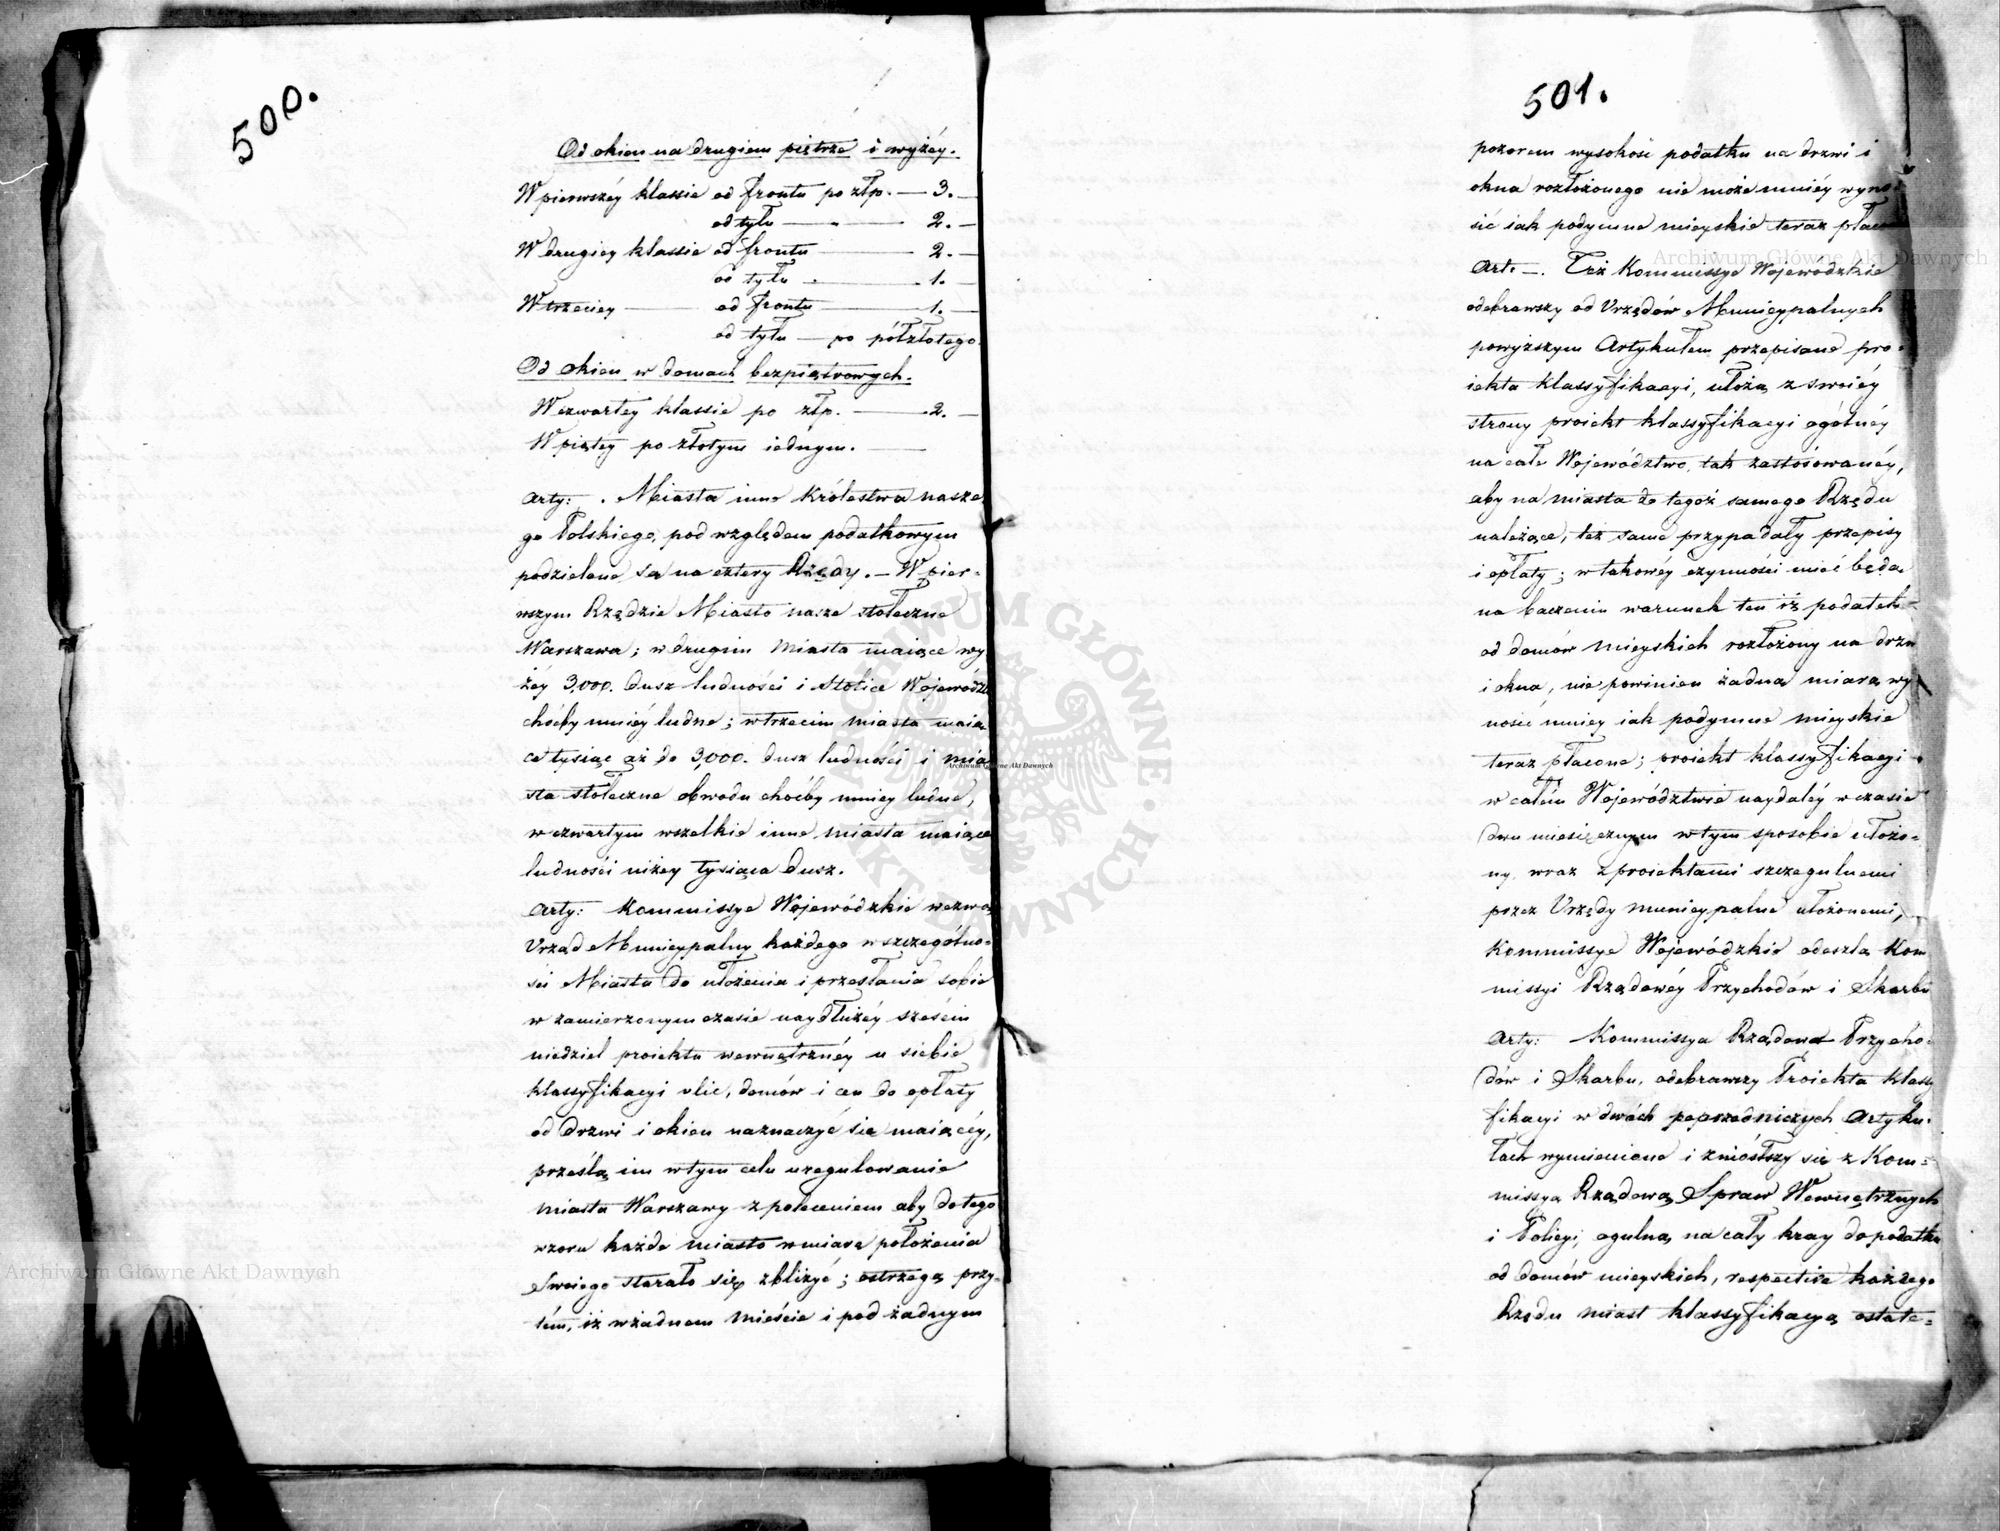 500.
Od okien na drugiem piętrze i wyżéy.
W pierwszéy klassie od frontu po złp. — 3. —
od tyłu — „ — 2. —
W drugiey klassie od frontu — 2. —
od tyłu — 1. —
W trzeciey — od frontu — 1. —
od tyłu — po półzłotego.
Od okien w domach bezpiętrowych.
W czwartey klassie po złp. — 2. —
W piątey po złotym iednym. —
Arty: . Miasta inne Królestwa nasze
go Polskiego, pod względem podatkowym
podzielone są na cztery Rzędy. — W pier-
wszym Rzędzie Miasto nasze stołeczne
Warszawa; w drugim Miasta maiące wy
żéy 3,000. dusz ludności i stolice Wojewódz
choćby mniéy ludne; w trzecim miasta maią
ce tysiąc aż do 3,000. dusz ludności i mia
sta stołeczne obwodu choćby mniey ludne,
w czwartym wszelkie inne miasta maiące
ludności niżey tysiąca dusz.
Arty: Kommissye Wojewódzkie wezwą
Urząd Municypalny każdego w szczególno-
ści Miasta do ułożenia i przesłania sobie
w zamierzonym czasie naydłużéy sześciu
niedziel proiektu wewnętrznéy u siebie
klassyfikacyi ulic, domów i cen do opłaty
od drzwi i okien naznaczyć się maiącéy,
prześlą im w tym celu uregulowanie
miasta Warszawy z poleceniem aby do tego
wzoru każde miasto w miarę położenia
swoiego starało się zbliżyć; ostrzegą przy-
tém, iż w żadnem mieście i pod żadnym
501.
pozorem wysokość podatku na drzwi i
okna rozłożonego nie może mniéy wyno-
sić iak podymne mieyskie teraz płac
Art. —. Też Kommissye Wojewódzkie
odebrawszy od Urzędów Municypalnych
powyższym Artykułem przepisane pro-
iekta klassyfikacyi, ułożą z swoiéy
strony proiekt klassyfikacyi ogólnéy
na całe Województwo, tak zastósowanéy,
aby na miasta do tegoż samego Rzędu
należące, też same przypadały przepisy
i opłaty; w takowéy czynności mieć będą
na baczeniu warunek ten iż podatek
od domów mieyskich rozłożony na drzw
i okna, nie powinien żadną miarą wy
nosić mniey iak podymne mieyskie
teraz płacone; proiekt klassyfikacyi
w całém Województwie naydaléy w czasie
dwu miesięcznym w tym sposobie ułożo-
ny, wraz z proiektami szczegulnemi
przez Urzędy municypalne ułożonemi,
Kommissye Wojewódzkie odeszlą Kom
missyi Rządowéy Przychodów i Skarbu
Arty: Kommissya Rządowa Przycho-
dów i Skarbu, odebrawszy Proiekta klassy
fikacyi w dwóch poprzedniczych Artyku-
łach wymienione i zniósłszy się z Kom-
missyą Rządową Spraw Wewnętrznych
i Policyi, ogulną na cały kray do podatku
od domów mieyskich, respective każdego
Rzędu miast klassyfikacyą ostate-
Archiwum Główne Akt Dawnych
Archiwum Główne Akt Dawnych
Archiwum Główne Akt Dawnych
Archiwum Główne Akt Dawnych
ARCHIWUM GŁÓWNE AKT DAWNYCH